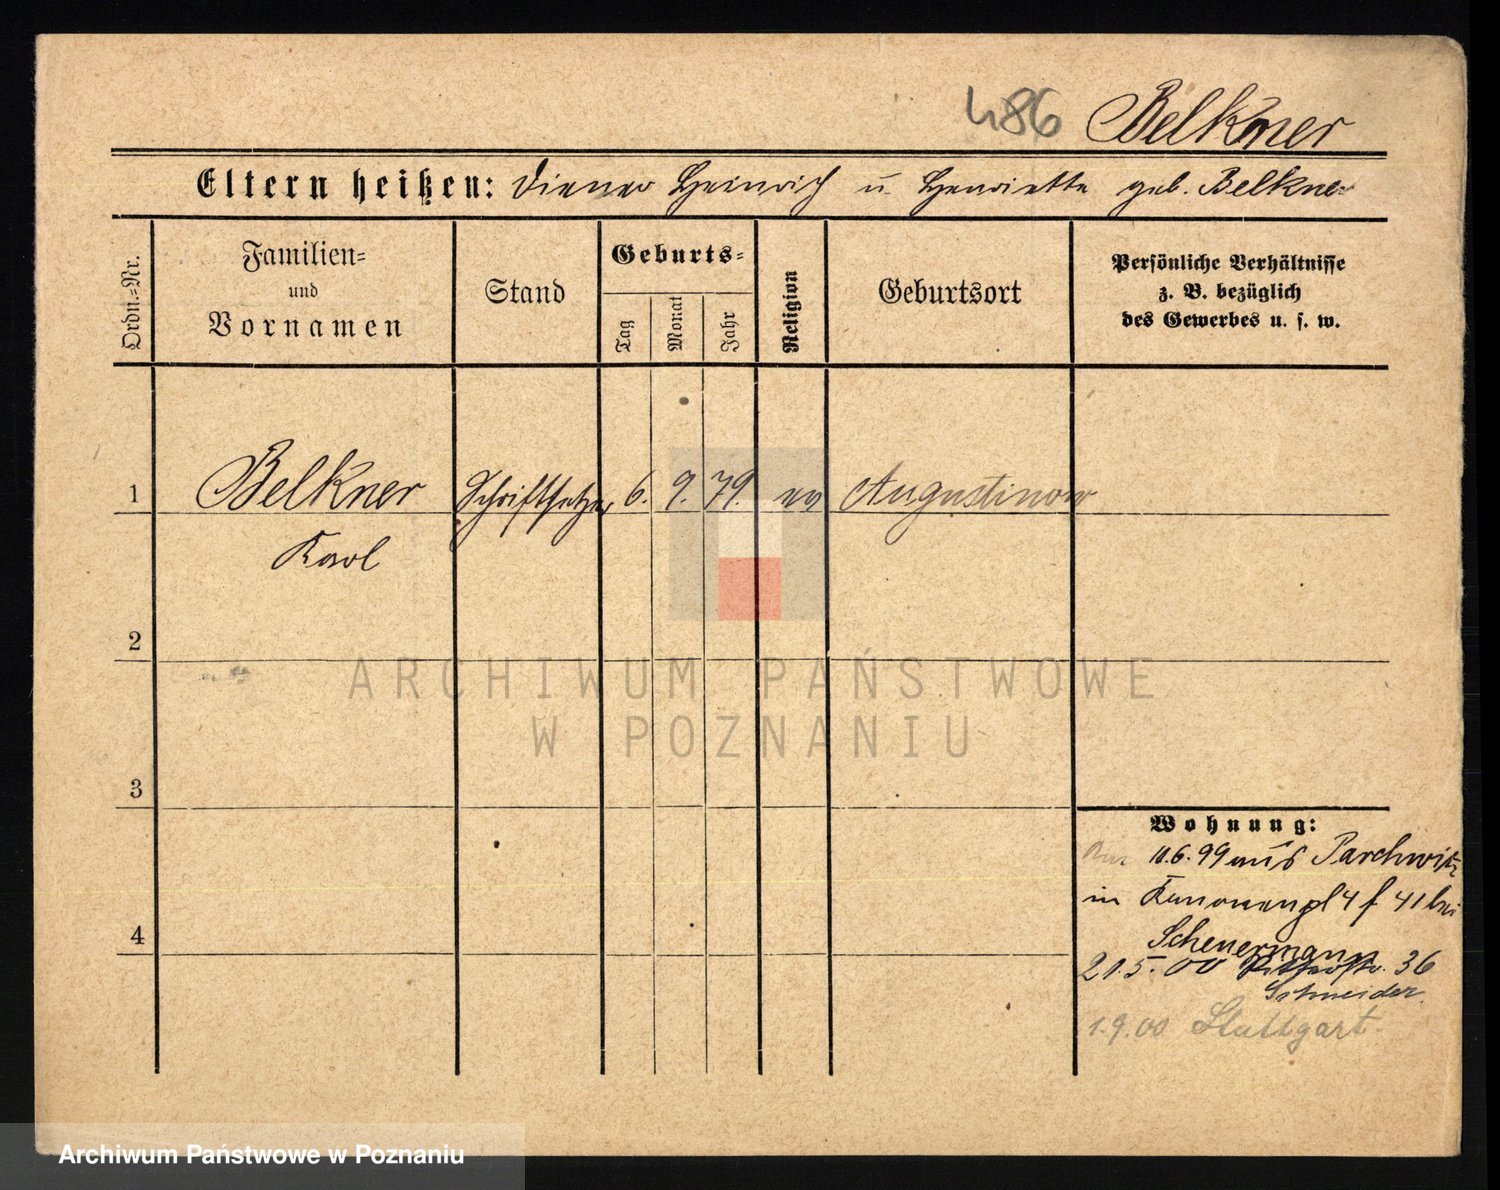 486 Belkner
Eltern heißen: Diener Heinrich u. Henriette geb. Belkner
Ordn.-Nr.
Familien-
und
Vornamen
Stand
Geburts-
Tag
Monat
Jahr
Religion
Geburtsort
Persönliche Verhältnisse
z. B. bezüglich
des Gewerbes u. s. w.
1 Belkner Schriftsetzer 6. 9. 79. ev Augustinow
Karl
2
ARCHIWUM PAŃSTWOWE
W POZNANIU
3
Wohnung:
10.6.99 aus Parchwitz
in Kanonenpl 4 f 41 bei
4
Scheuermann
21.5.00 36
Schneider
1.9.00 Stuttgart
Archiwum Państwowe w Poznaniu